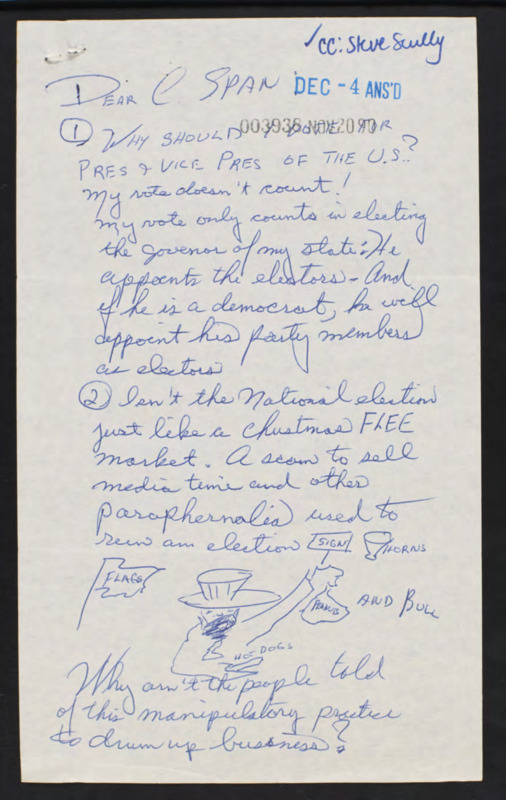 ✓CC: Steve Scully
DEAR C SPAN
DEC -4 ANS'D
① WHY SHOULD I VOTE FOR
PRES & VICE PRES OF THE U.S.?
My vote doesn't count!
My vote only counts in electing
the govenor of my state: He
appoints the electors - And
if he is a democrat, he will
appoint his party members
as electors
② Isn't the National election
just like a Christmas FLEE
market. A scam to sell
media time and other
paraphernalia used to
run an election SIGN HORNS
FLAGS
AND BULL
HOT DOGS
Why arn't the people told
of this manipulatory practice
to drum up bussness?